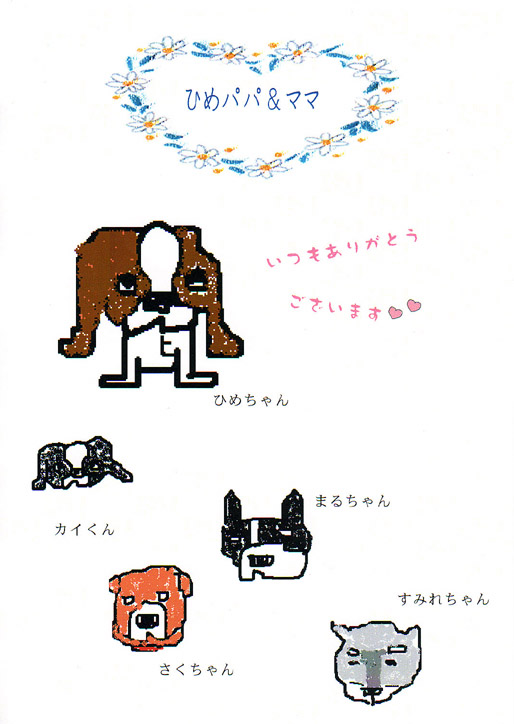 ひめパパ＆ママ
いつもありがとう
ございます
ひめちゃん
まるちゃん
カイくん
すみれちゃん
さくちゃん